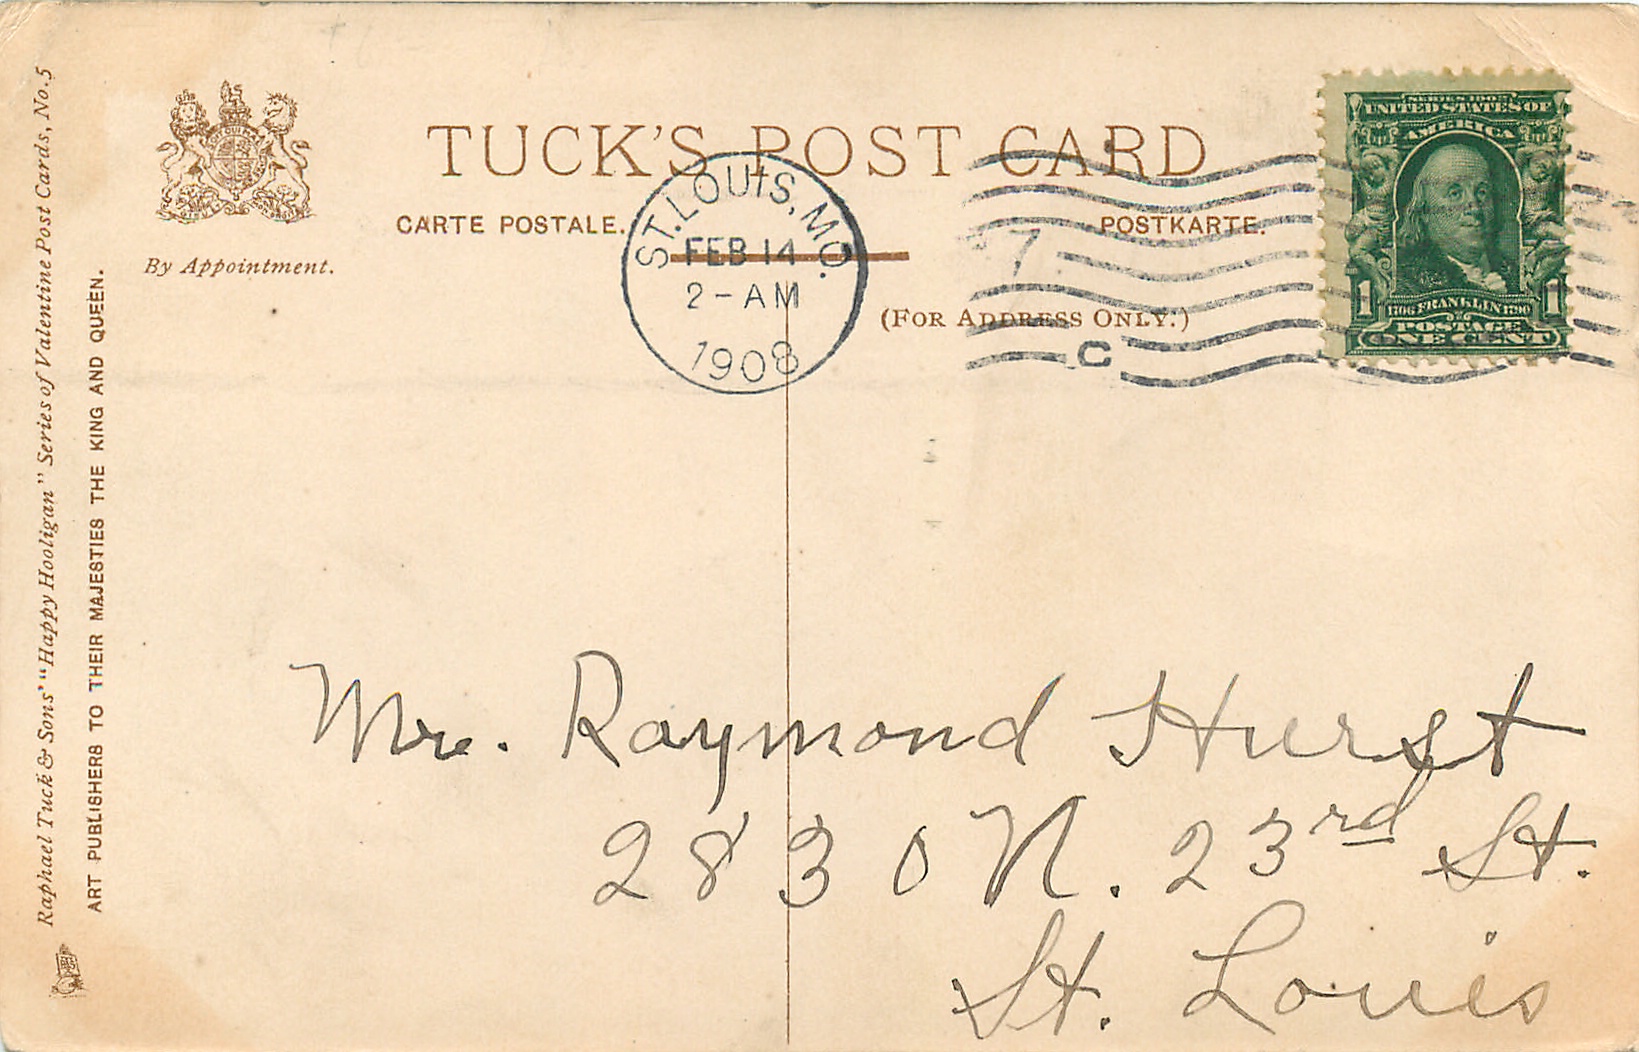 Raphael Tuck & Sons' "Happy Hooligan" Series of Valentine Post Cards, No. 5
ART PUBLISHERS TO THEIR MAJESTIES THE KING AND QUEEN.
By Appointment.
TUCK'S POST CARD
CARTE POSTALE.
POSTKARTE.
(FOR ADDRESS ONLY.)
ST. LOUIS, MO.
FEB 14
2-AM
1908
7
C
SERIES 1902
UNITED STATES OF
AMERICA
1 1
1706 FRANKLIN 1790
POSTAGE
ONE CENT
Mr. Raymond Hurst
2830 N. 23rd St.
St. Louis